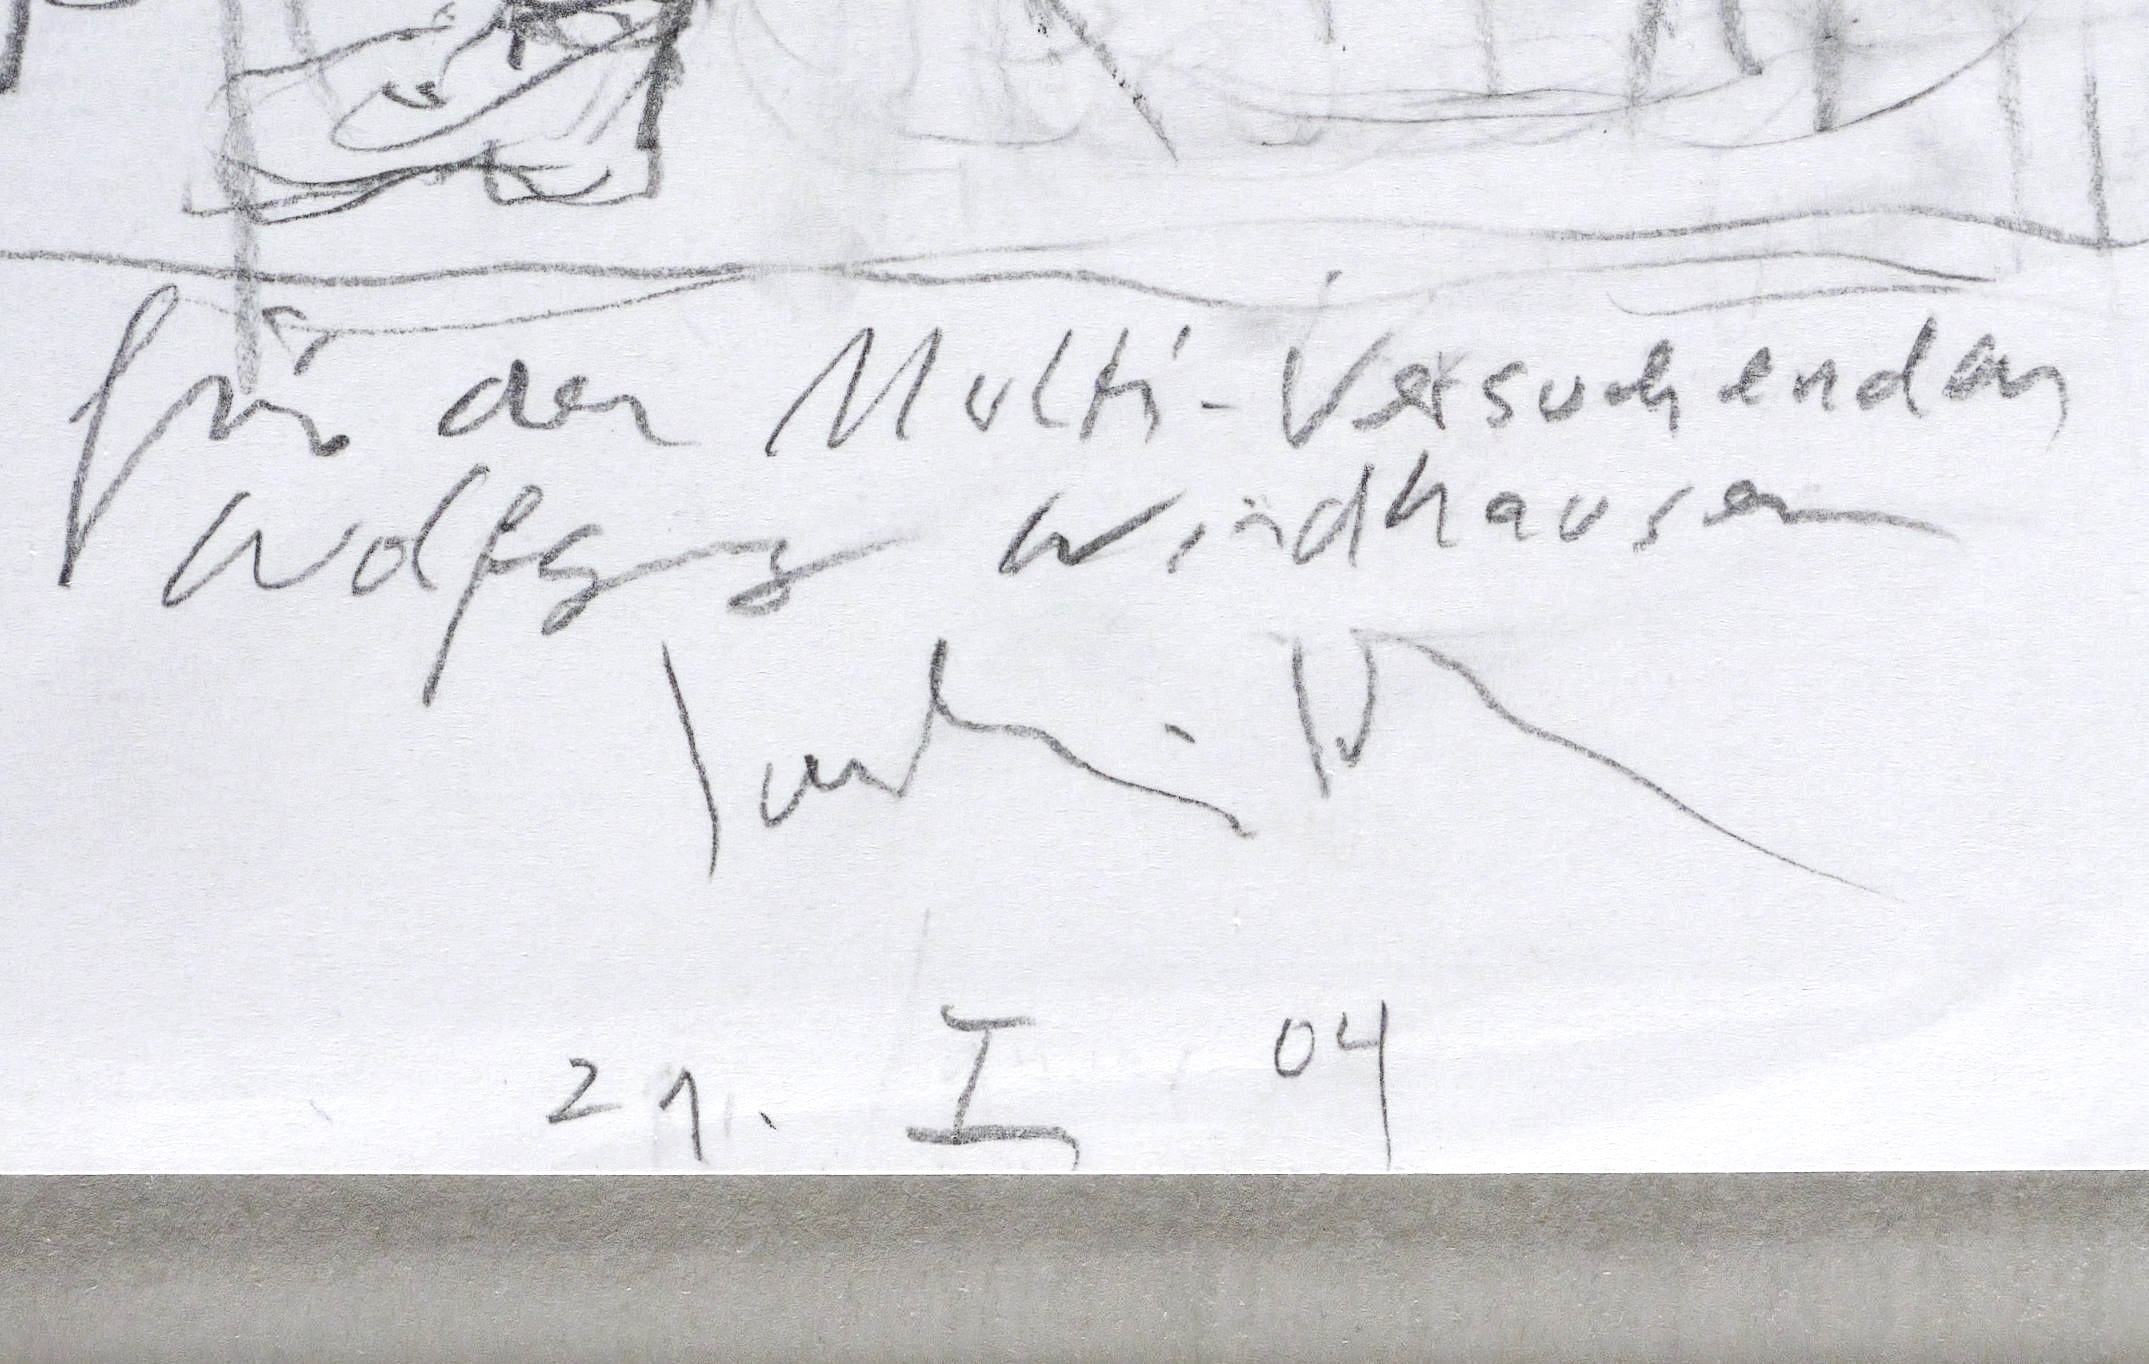 für den Multi-Versuchenden
Wolfgang Windhausen
21. I 04